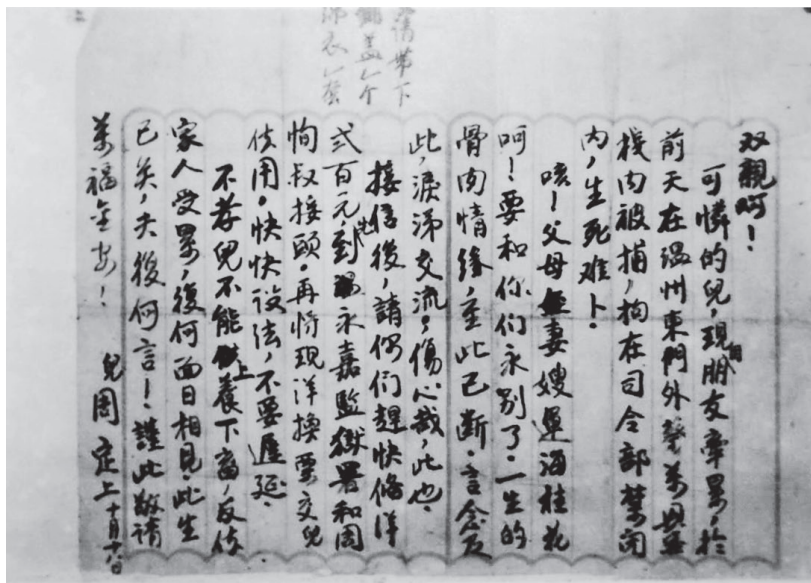 双親呵！
可憐的兒，現因朋友牽累，於
前天在温州東門外
機内被捕，拘在司令部禁闭
内，生死难卜。
咳！父母妻嫂運海桂花
呵！要和你们永别了。一生的
骨肉情缘，至此已断。言念及
此，淚涕交流，傷心哉，此也。
接信後，請你们趕快俻洋
弍百元，到永嘉監獄署和周
恂叔接頭。再将現洋换票交兒
使用，快快设法，不要遲延。
不孝兒不能上養下畜，反使
家人受累，復何面目相見。此生
已矣，夫復何言！謹此敬請
萬福金安！
兒周定上十月十八日
請带下
盖个
衣套